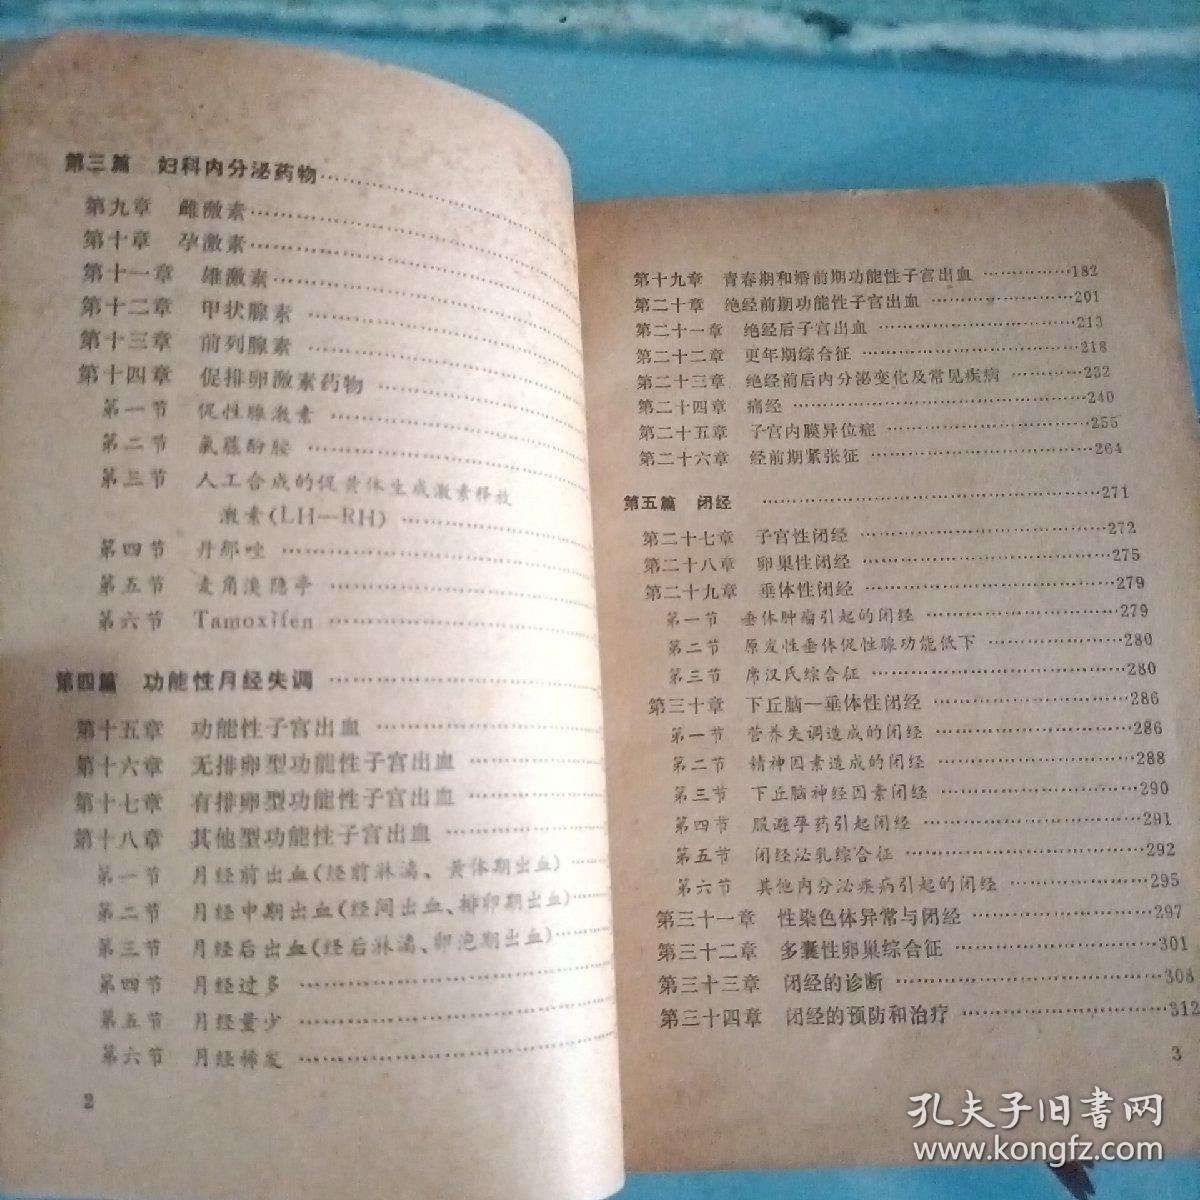 第三篇 妇科内分泌药物
第九章 雌激素
第十章 孕激素
第十一章 雄激素
第十二章 甲状腺素
第十三章 前列腺素
第十四章 促排卵激素药物
第一节 促性腺激素
第二节 氯䓣酚胺
第三节 人工合成的促黄体生成激素释放
激素(LH—RH)
第四节 丹那唑
第五节 麦角溴隐亭
第六节 Tamoxifen
第四篇 功能性月经失调
第十五章 功能性子宫出血
第十六章 无排卵型功能性子宫出血
第十七章 有排卵型功能性子宫出血
第十八章 其他型功能性子宫出血
第一节 月经前出血(经前淋漓、黄体期出血)
第二节 月经中期出血(经间出血、排卵期出血)
第三节 月经后出血(经后淋漓、卵泡期出血)
第四节 月经过多
第五节 月经量少
第六节 月经稀发
2
第十九章 青春期和婚前期功能性子宫出血 182
第二十章 绝经前期功能性子宫出血 201
第二十一章 绝经后子宫出血 213
第二十二章 更年期综合征 218
第二十三章 绝经前后内分泌变化及常见疾病 232
第二十四章 痛经 240
第二十五章 子宫内膜异位症 255
第二十六章 经前期紧张征 264
第五篇 闭经 271
第二十七章 子宫性闭经 272
第二十八章 卵巢性闭经 275
第二十九章 垂体性闭经 279
第一节 垂体肿瘤引起的闭经 279
第二节 原发性垂体促性腺功能低下 280
第三节 席汉氏综合征 280
第三十章 下丘脑—垂体性闭经 286
第一节 营养失调造成的闭经 286
第二节 精神因素造成的闭经 288
第三节 下丘脑神经因素闭经 290
第四节 服避孕药引起闭经 291
第五节 闭经泌乳综合征 292
第六节 其他内分泌疾病引起的闭经 295
第三十一章 性染色体异常与闭经 297
第三十二章 多囊性卵巢综合征 301
第三十三章 闭经的诊断 308
第三十四章 闭经的预防和治疗 312
3
孔夫子旧书网
www.kongfz.com